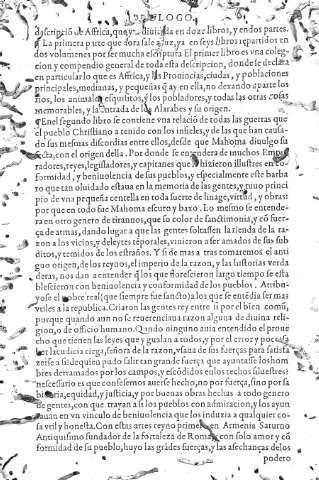 PROLOGO.
descripciõ de Affrica, que va diuidida en doze libros, y en dos partes.
¶ La primera parte que aora sale a luz, va en seys libros repartidos en
dos volumines por ser mucha escritura. El primer libro es vna colec-
gion y compendio general de toda esta descripcion, donde se declara
en particular lo que es Affrica, y las Prouincias, ciudades, y poblaciones
principales, medianas, y pequeñas q̃ ay en ella, no dexando aparte los
rios, los animales esquisitos, y los pobladores, y todas las otras cosas
memorables, y la entrada de los Alarabes y su origen.
¶ En el segundo libro se contiene vna relaciõ de todas las guerras que
el pueblo Christiano a tenido con los infieles, y de las que han causa-
do sus mesmas discordias entre ellos, desde que Mahoma diuulgo su
secta, con el origen della. Por donde se entendera de muchos Empe-
radores, reyes, legisladores, y capitanes que se hizieron illustres en cõ-
formidad, y beniuolencia de sus pueblos, y especialmente este barba
ro que tan oluidado estaua en la memoria de las gentes, y tuuo princi
pio de vna pequeña centella en toda suerte de linage, virtud, y obras:
por que en todo fue Mahoma escuro y baxo. Lo mesmo se entende-
ra en otro genero de tirannos, que so color de sanctimonia, y cõ fuer-
ça de armas, dando lugar a que las gentes soltassen la rienda de la ra-
zon a los vicios, y deleytes tẽporales, vinieron a ser amados de sus sub
ditos, y temidos de los estraños. Y si de mas atras tomaremos el anti
guo origen, de los reynos, el imperio de la razon, y las historias verda
deras, nos dan a entender q̃ los que florescieron largo tiempo se esta
blescieron con beniuolencia y conformidad de los pueblos. Atribu-
yose el nombre real (que siempre fue sancto) a los que se entẽdia ser mas
vtiles a la republica. Criaron las gentes rey entre si por el bien comũ,
porque quando aun no se reuerenciaua razon alguna de diuina reli-
gion, o de officio humano. Quãdo ninguno auia entendido el proue
cho que tienen las leyes que ygualan a todos, y por el error y poco sa
ber la cudicia ciega, señora de la razon, vsaua de sus fuerças para satisfa
zerse a si: de quien pudo salir tan grande fuerça que ayuntasse los hom
bres derramados por los campos, y escõdidos en los techos siluestres?
necessario es que confessemos auerse hecho, no por fuerça, sino por sa
biduria, equidad, y justicia, y por buenas obras hechas a todo genero
de gentes, con que trayan a si los pueblos con admiracion, y los ayun
tauan en vn vinculo de beniuolencia que los induzia a qualquier co-
sa vtil y honesta. Con estas artes reyno primero en Armenia Saturno
Antiquissimo fundador de la fortaleza de Roma, y con solo amor y cõ
formidad de su pueblo, huyo las grãdes fuerças, y las asechanças de los
podero